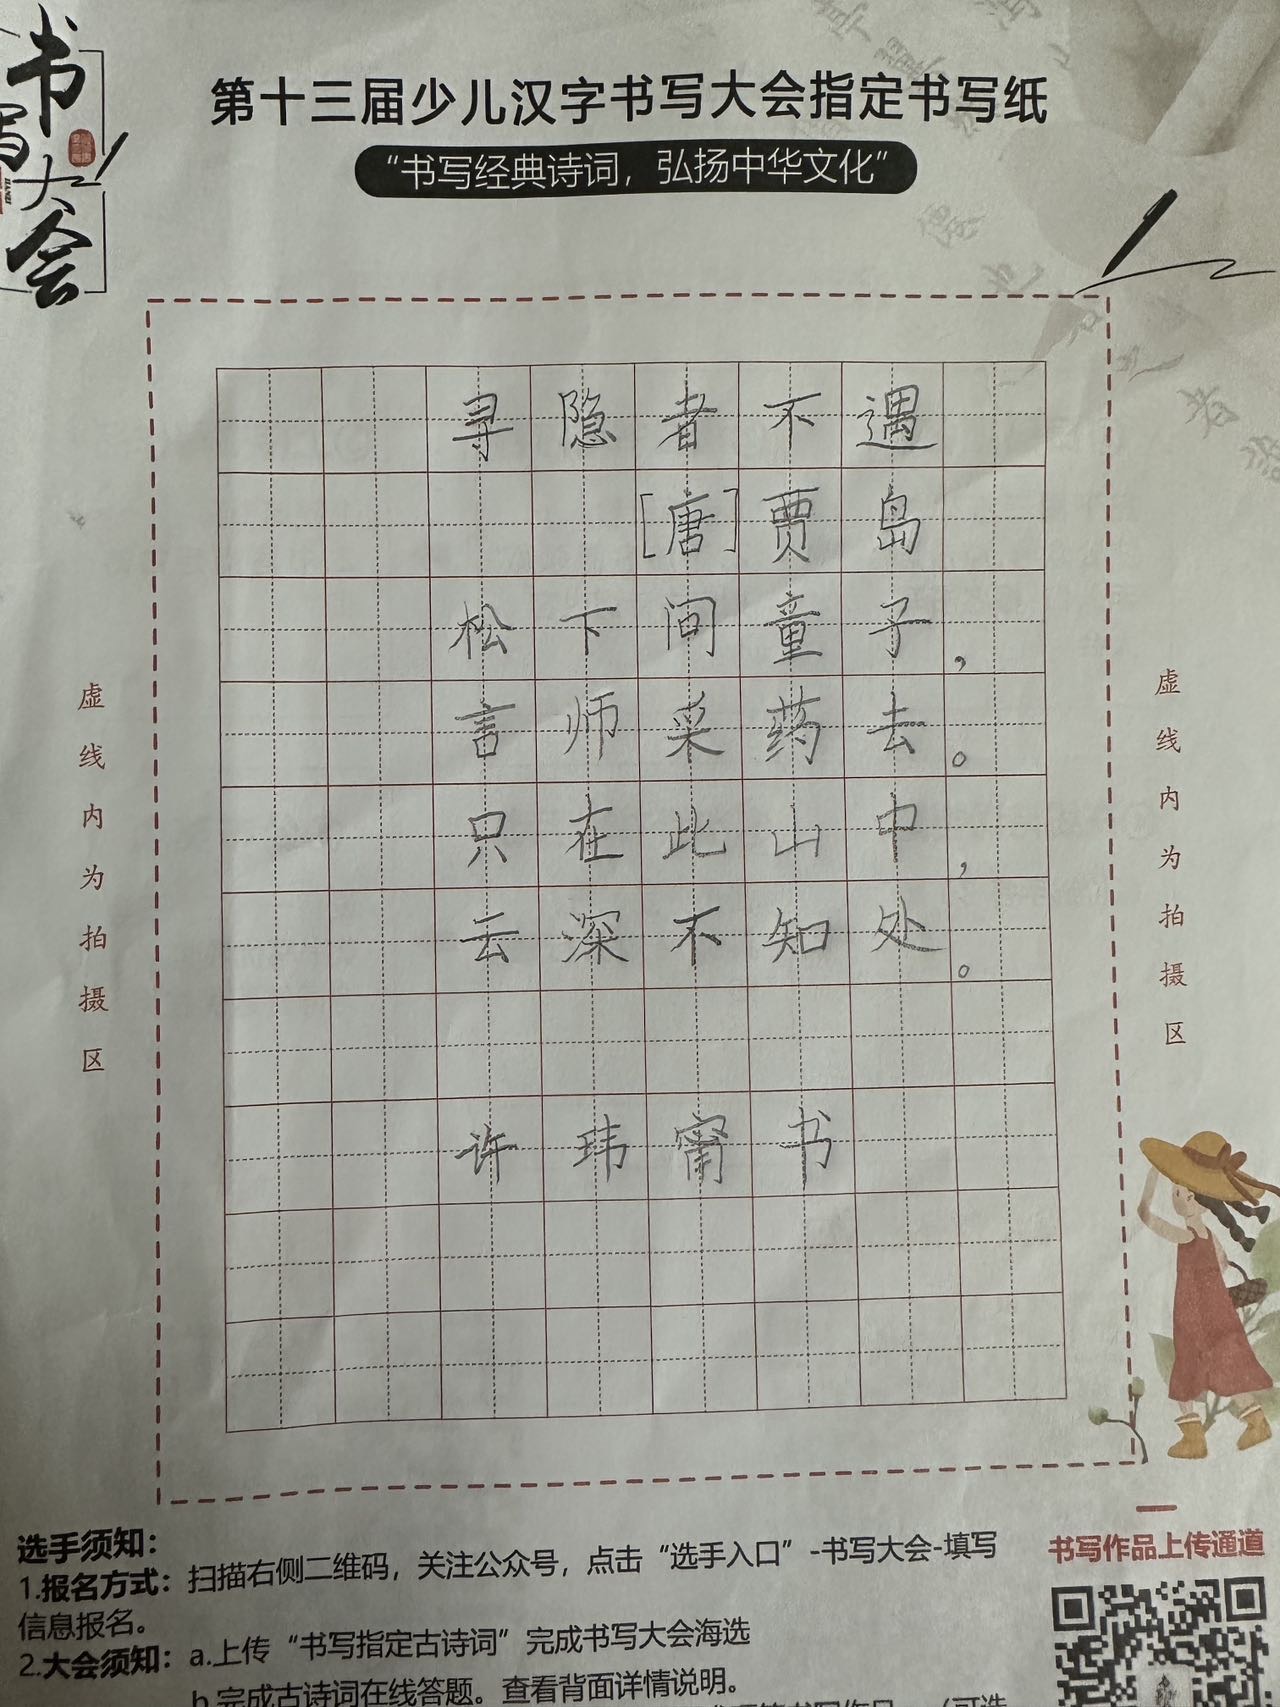 书写大会
第十三届少儿汉字书写大会指定书写纸
“书写经典诗词，弘扬中华文化”
寻隐者不遇
[唐]贾岛
松下问童子，
言师采药去。
只在此山中，
云深不知处。
许玮甯书
虚线内为拍摄区
虚线内为拍摄区
书写作品上传通道
选手须知：
1.报名方式：扫描右侧二维码，关注公众号，点击“选手入口”-书写大会-填写
信息报名。
2.大会须知：a.上传“书写指定古诗词”完成书写大会海选
b.完成古诗词在线答题。查看背面详情说明。